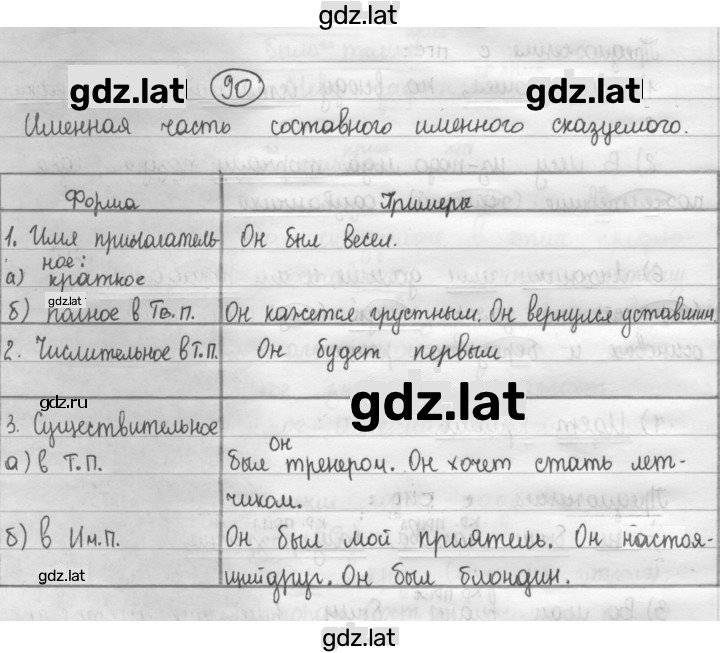 gdz.lat
gdz.lat 90 gdz.lat
Именная часть составного именного сказуемого.
Форма Примеры
1. Имя прилагатель Он был весел.
ное:
а) краткое
gdz.lat
б) полное в Тв.п. Он кажется грустным. Он вернулся уставшим
2. Числительное в Т.П. Он будет первым
gdz.ru gdz.lat
3. Существительное
Он
а) в Т.П. был тренером. Он хочет стать лет-
чиком.
б) в Им.П. Он был мой приятель. Он настоя-
gdz.lat щий друг. Он был блондин.
gdz.lat